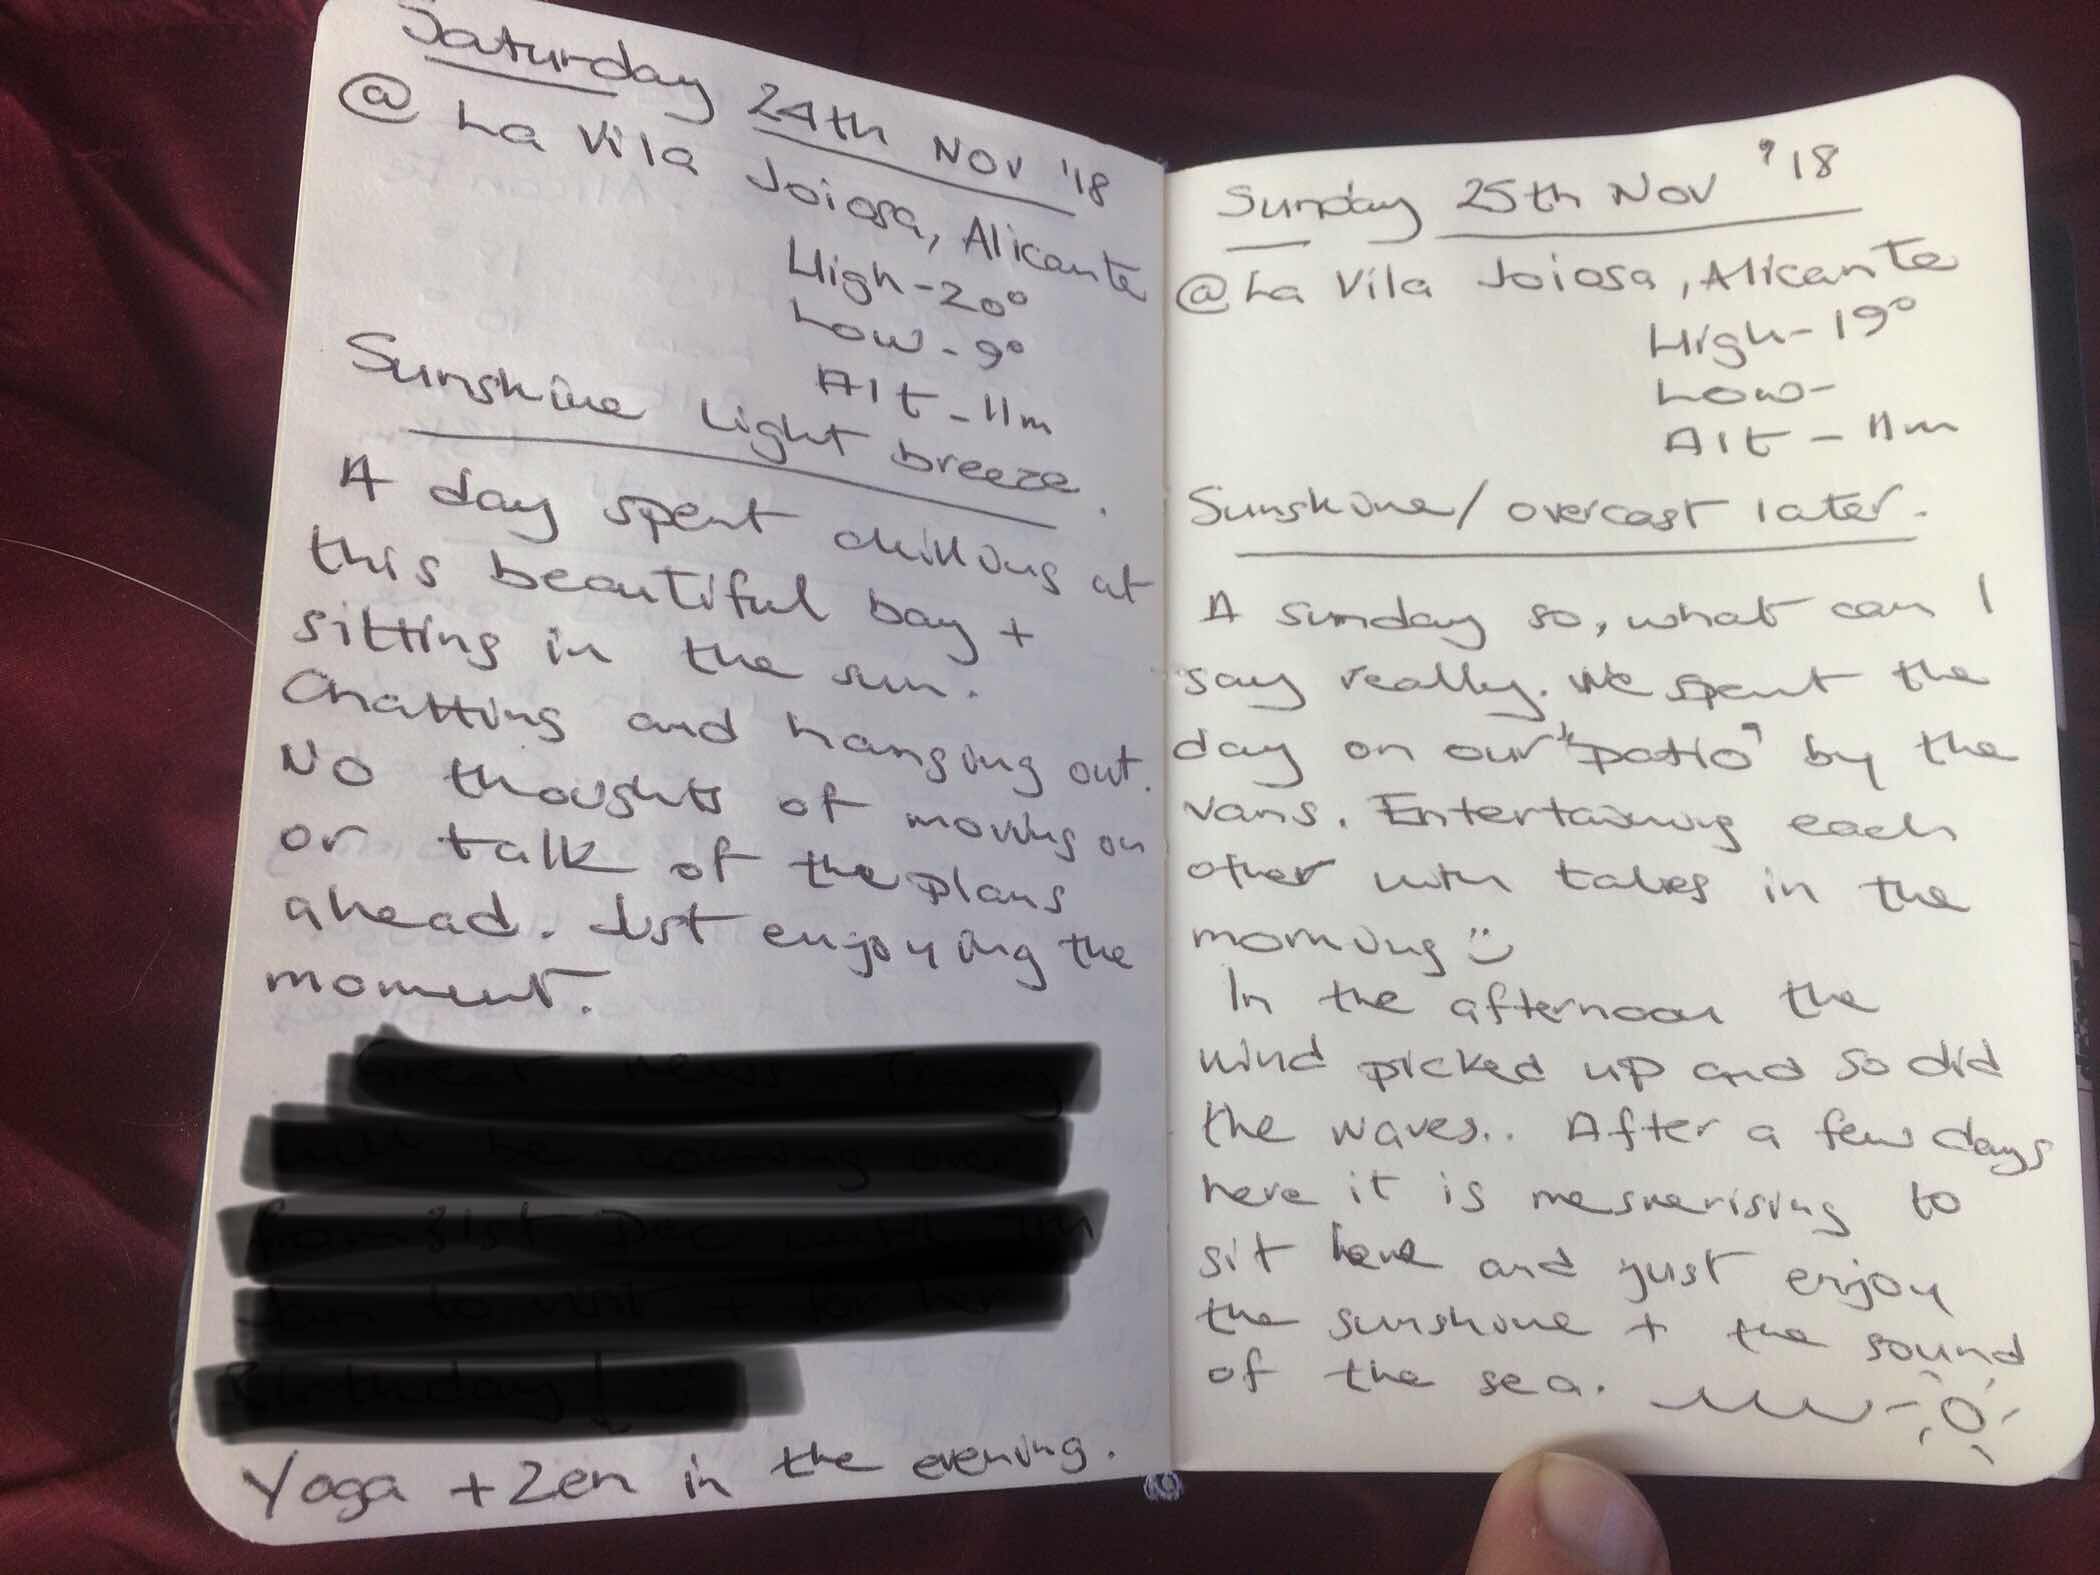 Saturday 24th Nov '18
@ La Vila Joiosa, Alicante
High - 20°
Low - 9°
Alt - 11m
Sunshine Light breeze.
A day spent chilling at
this beautiful bay +
sitting in the sun.
Chatting and hanging out.
No thoughts of moving on
or talk of the plans
ahead. Just enjoying the
moment.
Yoga + Zen in the evening.
Sunday 25th Nov '18
@ La Vila Joiosa, Alicante
High - 19°
Low -
Alt - 11m
Sunshine / overcast later.
A sunday so, what can I
say really. We spent the
day on our "patio" by the
vans. Entertaining each
other with tales in the
morning :)
In the afternoon the
wind picked up and so did
the waves.. After a few days
here it is mesmerising to
sit here and just enjoy
the sunshine + the sound
of the sea.